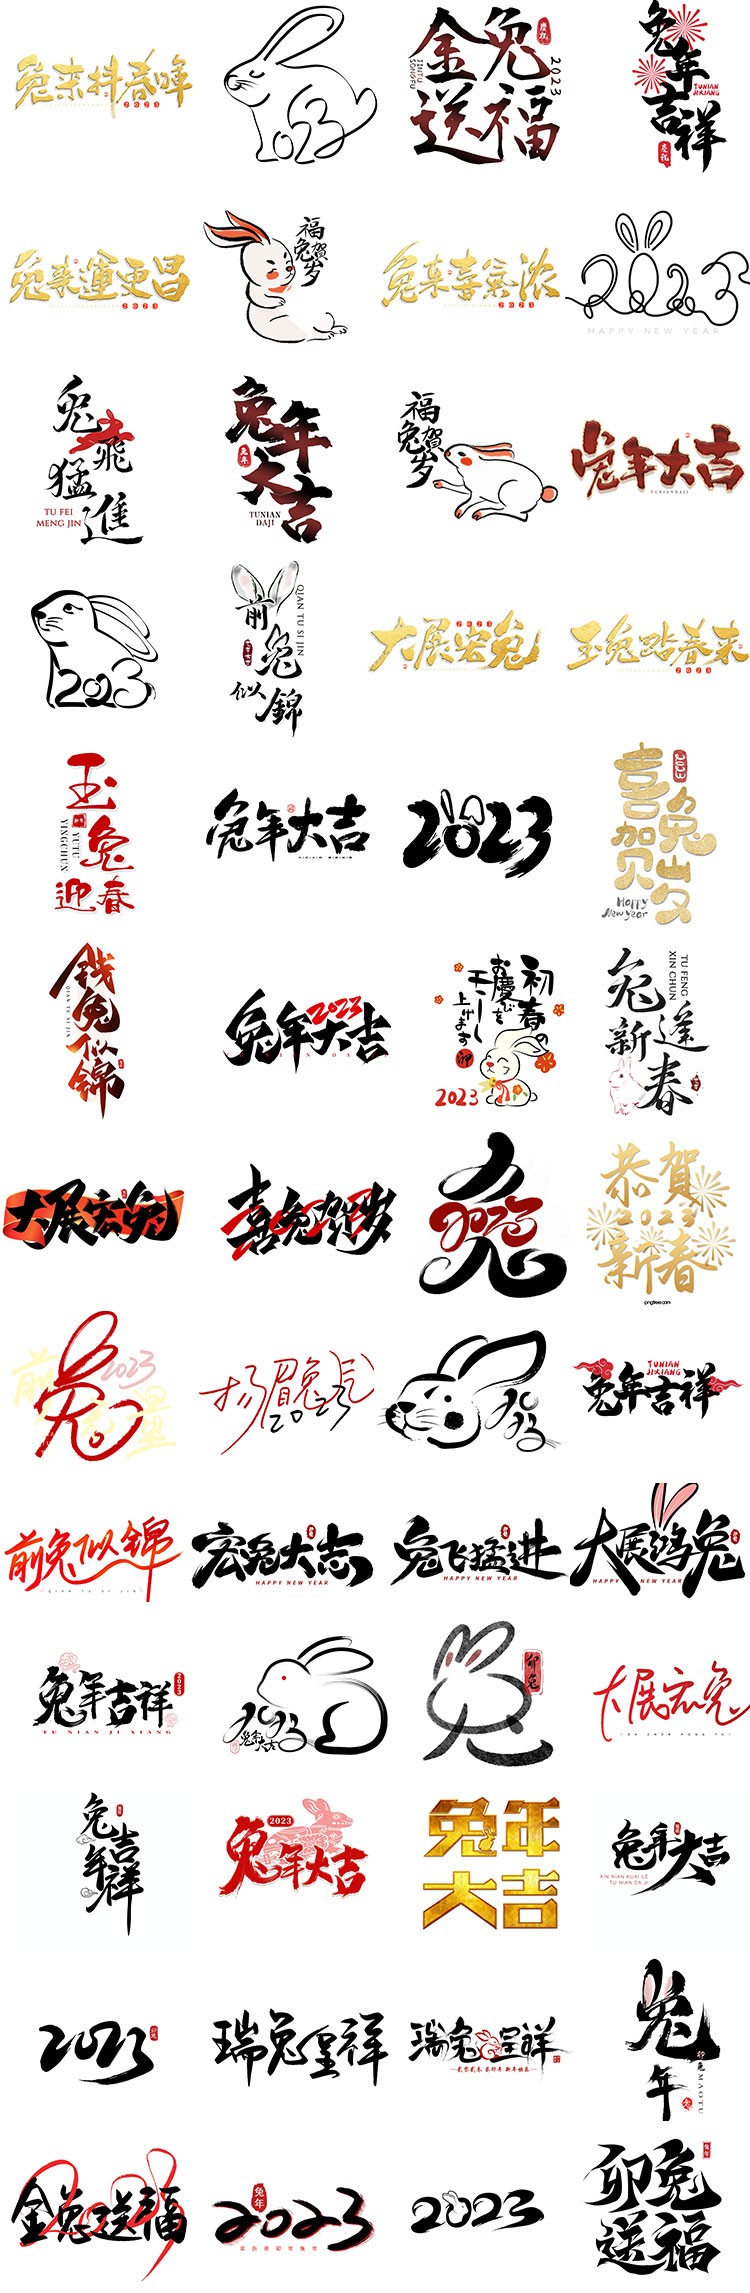 兔来抖春晖
2023
金兔
送福
JINTU
SONGFU
2023
慶祝
兔年吉祥
TUNIAN
JIXIANG
慶祝
兔来運更昌
2023
福兔賀岁
兔来喜氣浓
2023
2023
HAPPY NEW YEAR
兔飛猛進
TU FEI
MENG JIN
兔年大吉
兔年
TUNIAN
DAJI
福兔賀岁
兔年大吉
TUNIANDAJI
2023
前兔似錦
QIAN TU SI JIN
大展宏兔
2023
玉兔踏春来
2023
玉兔迎春
YUTU
YINGCHUN
兔年大吉
2023
喜兔贺岁
2023
Happy
New year
钱兔似锦
QIAN TU SI JIN
兔年大吉
2023
初春の
お慶びを
申し
上げます
卯
2023
兔逢新春
TU FENG
XIN CHUN
大展宏兔
喜兔贺岁
兔
2023
恭賀
2023
新春
pngtree.com
兔
2023
扬眉兔气
2023
2023
兔年吉祥
TUNIAN
JIXIANG
前兔似锦
QIAN TU SI JIN
宏兔大志
HAPPY NEW YEAR
兔飞猛进
HAPPY NEW YEAR
大展鸿兔
HAPPY NEW YEAR
兔年吉祥
2023
TU NIAN JI XIANG
2023
兔年大吉
兔
卯兔
大展宏兔
DA ZHAN HONG TU
兔年吉祥
2023
兔年大吉
兔年
大吉
兔年大吉
XIN NIAN KUAI LE
TU NIAN DA JI
2023
瑞兔呈祥
瑞兔呈祥
兔年
卯兔
MAOTU
金兔送福
2023
兔年
2023
2023
卯兔
送福